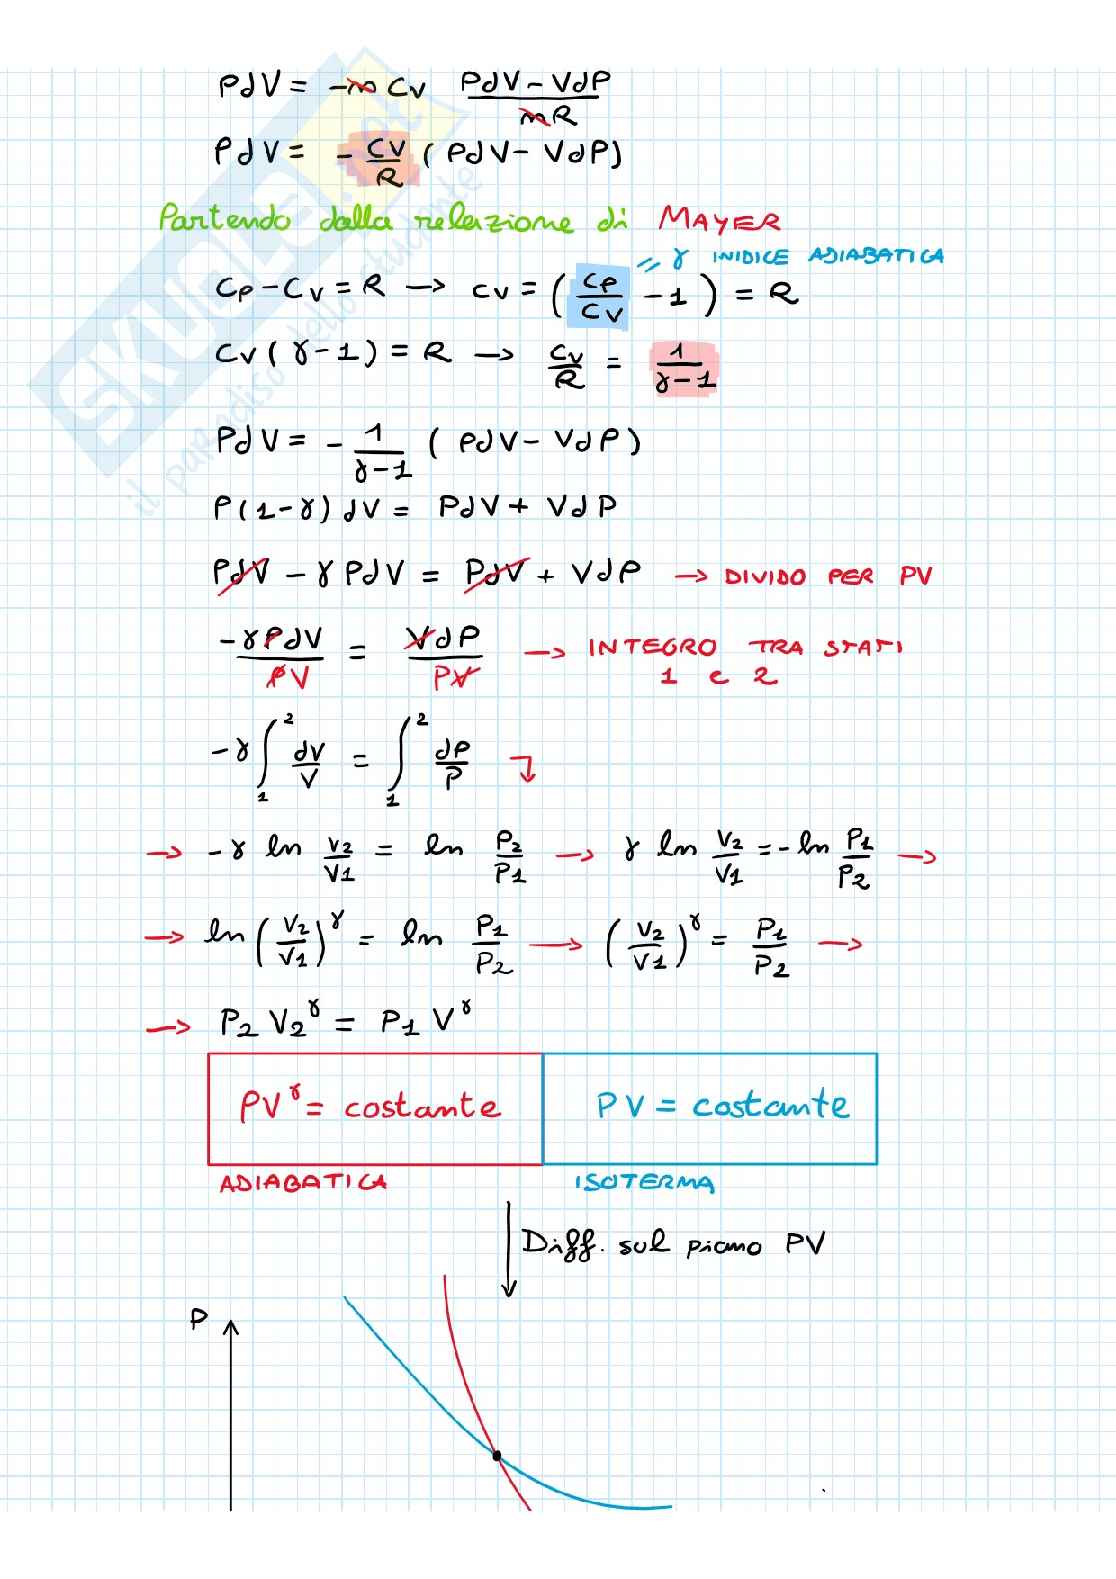 PdV = -n Cv (PdV - VdP)/(nR)
PdV = - Cv/R (PdV - VdP)
Partendo dalla relazione di MAYER
= γ INIDICE ADIABATICA
Cp - Cv = R → cv = (Cp/Cv - 1) = R
Cv(γ-1) = R → Cv/R = 1/(γ-1)
PdV = - 1/(γ-1) (PdV - VdP)
P(1-γ)dV = PdV + VdP
PdV - γPdV = PdV + VdP → DIVIDO PER PV
-γPdV/PV = VdP/PV → INTEGRO TRA STATI
1 e 2
-γ ∫₁² dV/V = ∫₁² dP/P
→ -γ ln V2/V1 = ln P2/P1 → γ ln V2/V1 = -ln P1/P2 →
→ ln (V2/V1)^γ = ln P1/P2 → (V2/V1)^γ = P1/P2 →
→ P2 V2^γ = P1 V^γ
PV^γ = costante PV = costante
ADIABATICA ISOTERMA
Diff. sul piano PV
P
SKUOLA.net
il paradiso dello studente